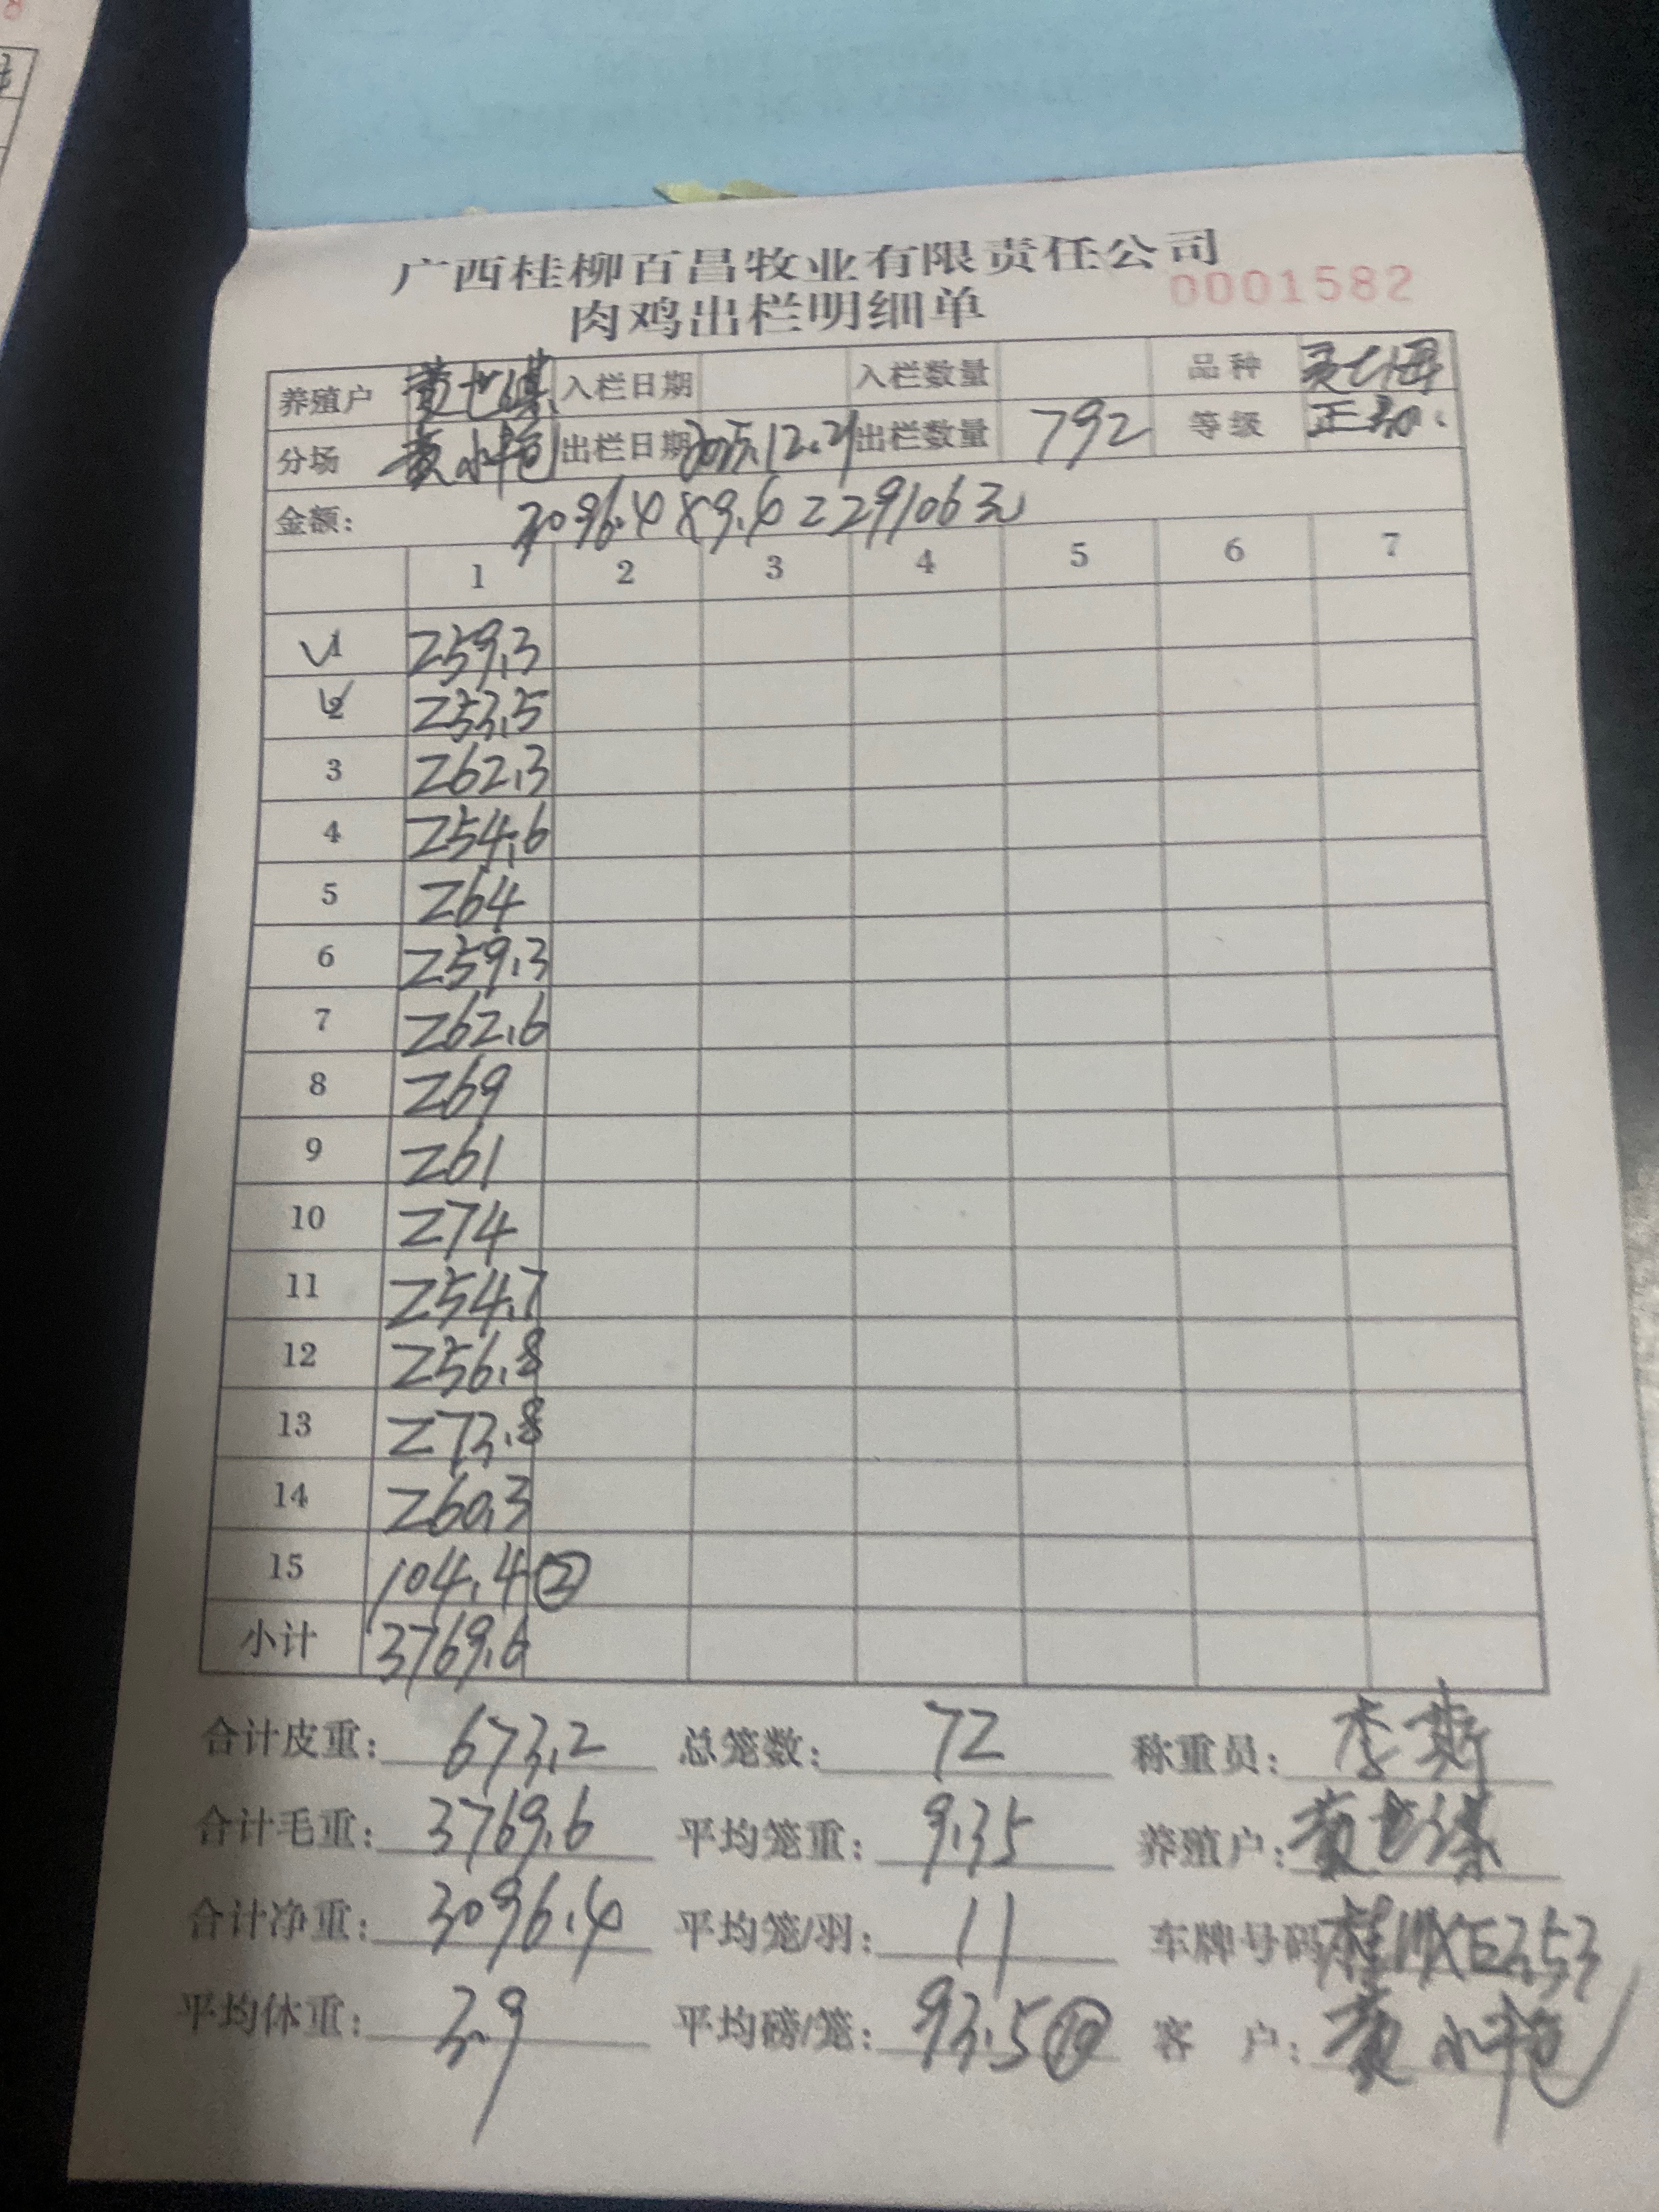 广西桂柳百昌牧业有限责任公司
肉鸡出栏明细单 0001582
养殖户 黄世 入栏日期 入栏数量 品种
分场 黄小艳 出栏日期 2025.12.21 出栏数量 792 等级 正
金额: 3096.4×9.4=29106元
1 2 3 4 5 6 7
1 259.3
2 253.5
3 262.3
4 254.6
5 264
6 259.3
7 262.6
8 269
9 261
10 274
11 254.7
12 256.8
13 273.8
14 260.3
15 104.4 ②
小计 3769.6
合计皮重: 673.2 总笼数: 72 称重员: 李
合计毛重: 3769.6 平均笼重: 9.35 养殖户: 黄世
合计净重: 3096.4 平均笼/羽: 11 车牌号码: 桂
平均体重: 3.9 平均磅/笼: 93.5 客 户: 黄小艳